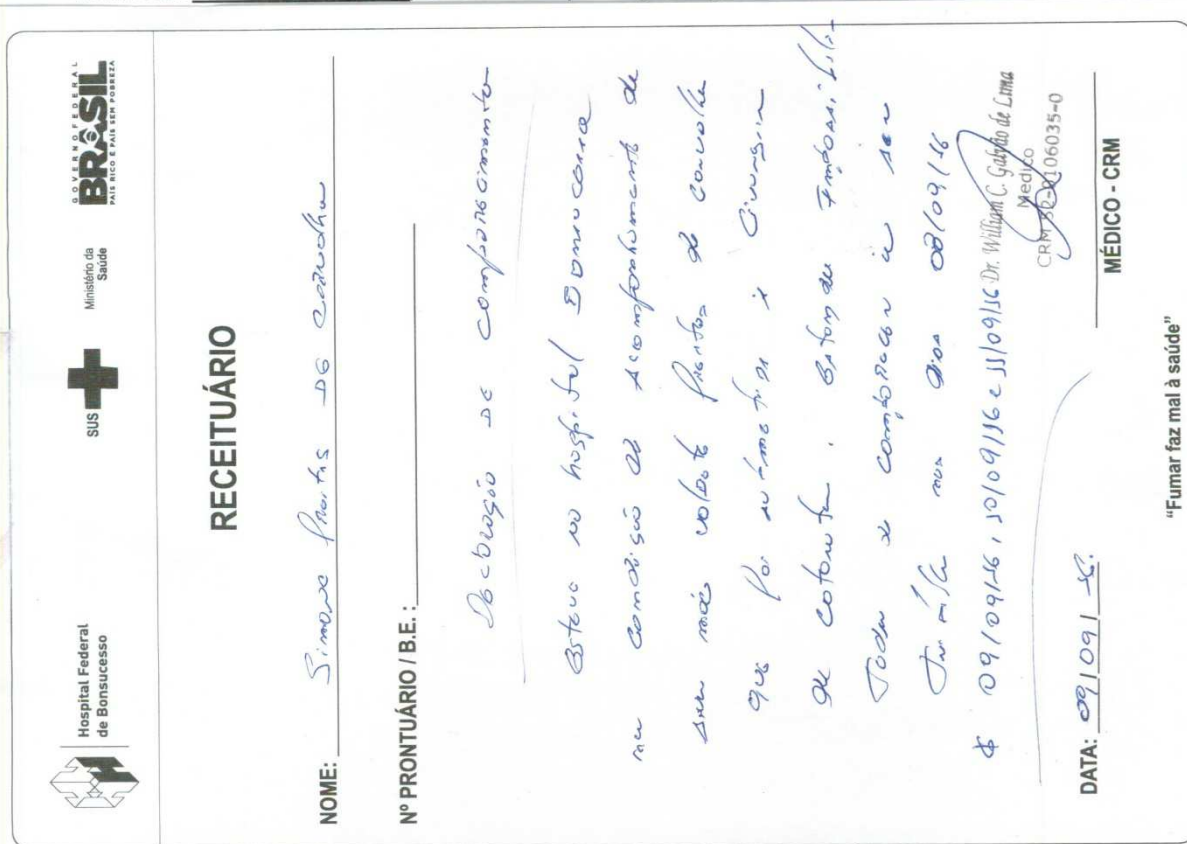 Hospital Federal
de Bonsucesso
SUS
Ministério da
Saúde
GOVERNO FEDERAL
BRASIL
PAÍS RICO É PAÍS SEM POBREZA
RECEITUÁRIO
NOME: Simone de Carvalho
Nº PRONTUÁRIO / B.E. :
Declaração de comparecimento
Esteve no hospital
na condição de acompanhamento de
sua mãe de Carvalho
que foi submetida à Cirurgia
de catarata. Estando
comparecer
nos dias 08/09/16
09/09/16, 10/09/16 e 11/09/16
Dr. William C. Galvão de Lima
Médico
CRM 52-0106035-0
DATA: 09/09/16.
MÉDICO - CRM
"Fumar faz mal à saúde"